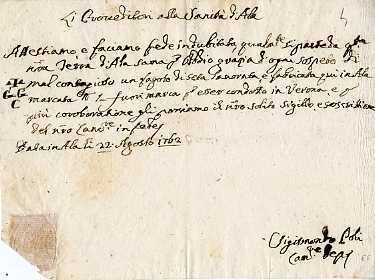 Li Proveditori alla Sanità d'Ala
Attestiamo e faciamo fede indubitata qual.te si parte da q.ta
n̄ra Terra d'Ala sana p Iddio grazia d'ogni sospeto di
mal contagioso un fagoto di seta lavorata e fabricata qui in Ala
marcata fuori marca p esser condotto in Verona e p
più coroboratione gli poniamo il n̄ro solito sigillo e soscrizione
del n̄ro Canc.re in fede
Data in Ala li 22 Agosto 1762
Sigismondo
Canc.re